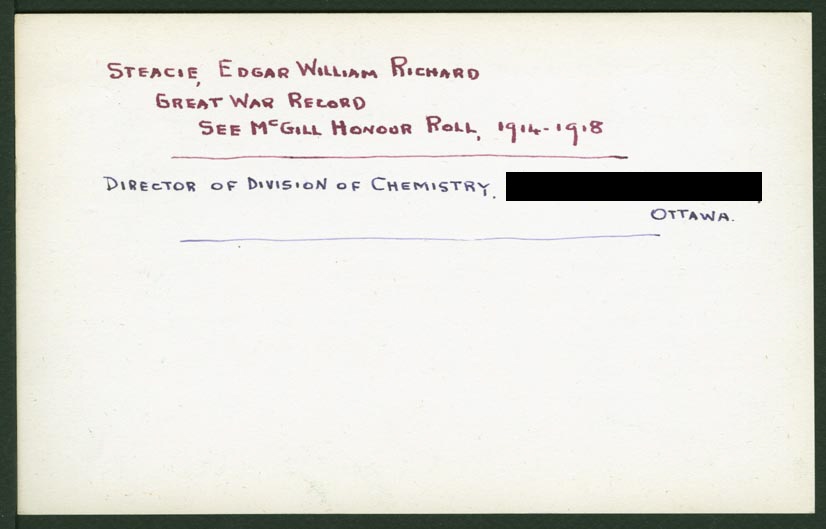 STEACIE, EDGAR WILLIAM RICHARD
GREAT WAR RECORD
SEE McGILL HONOUR ROLL, 1914-1918
DIRECTOR OF DIVISION OF CHEMISTRY,
OTTAWA.